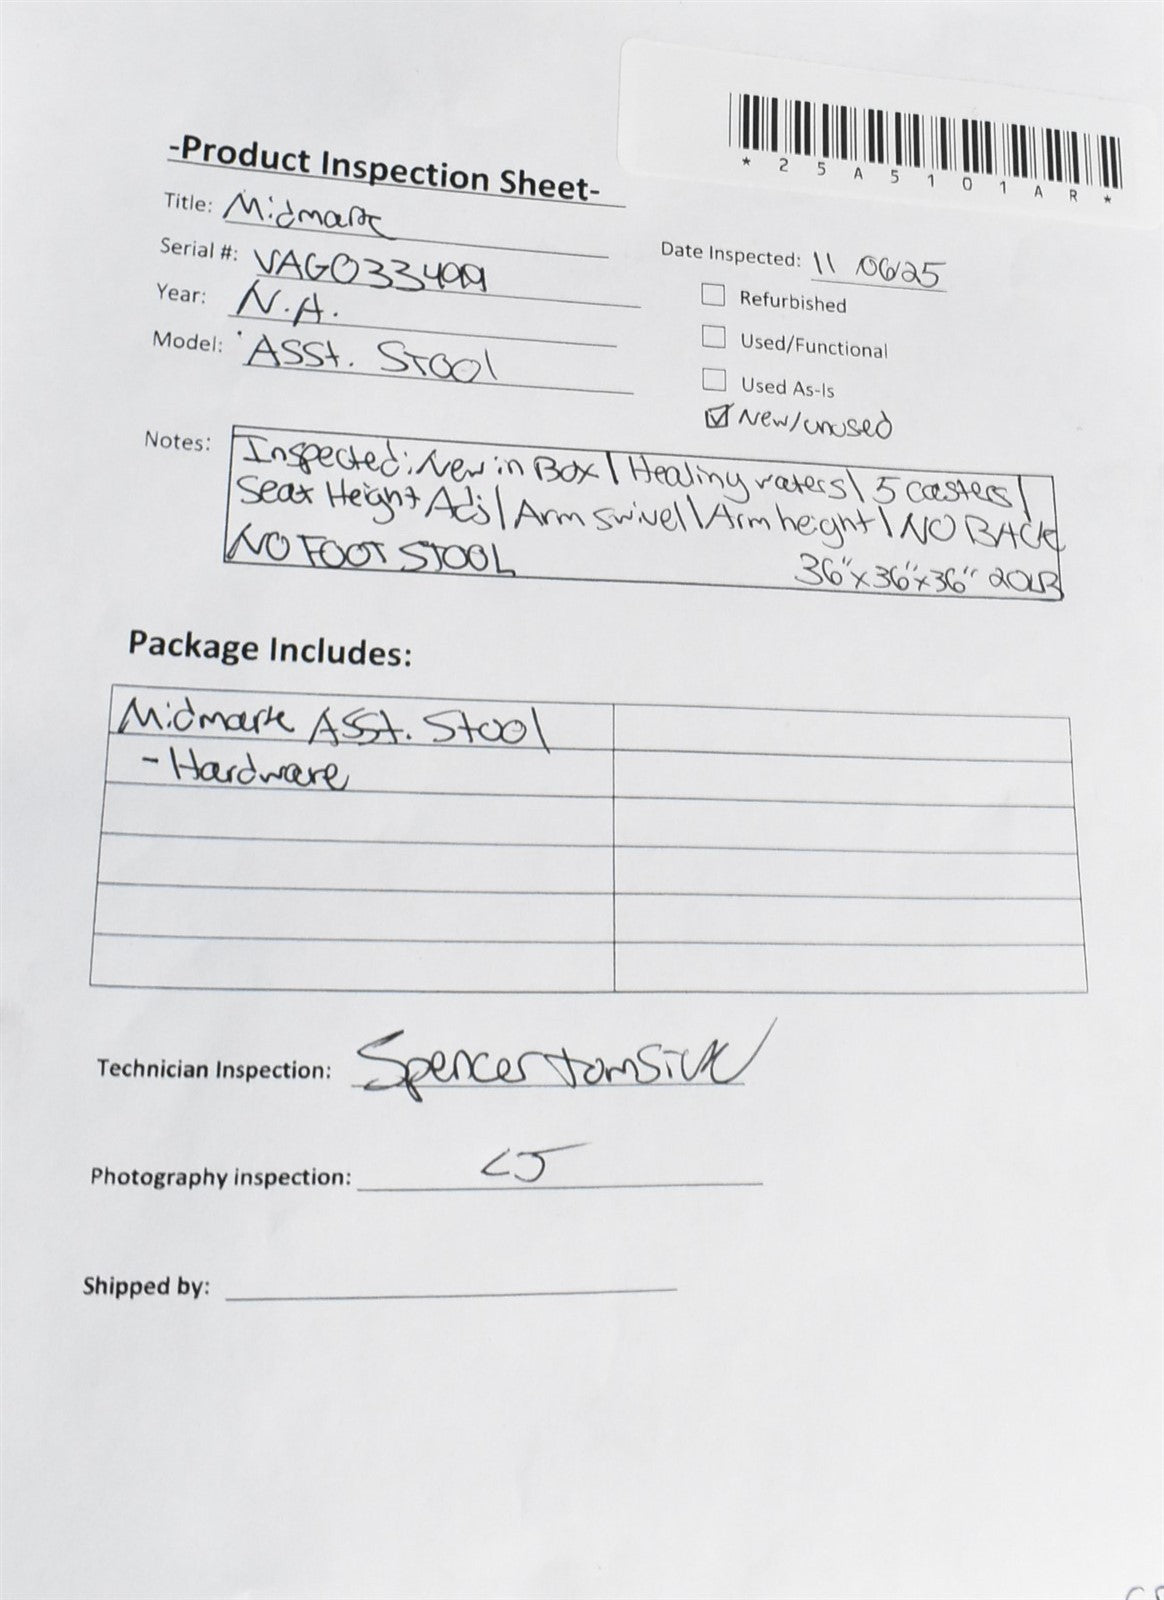 * 2 5 A 5 1 0 1 A R *
-Product Inspection Sheet-
Title: Midmark
Serial #: VAG033499
Year: N.A.
Model: ASSt. Stool
Date Inspected: 11 06/25
Refurbished
Used/Functional
Used As-Is
New/unused
Notes: Inspected: New in Box | Healing waters | 5 casters |
Seat Height Adj | Arm swivel | Arm height | NO BACK
NO FOOT STOOL
36"x36"x36" 20LB
Package Includes:
Midmark ASSt. Stool
- Hardware
Technician Inspection: Spencer
Photography inspection: CJ
Shipped by: